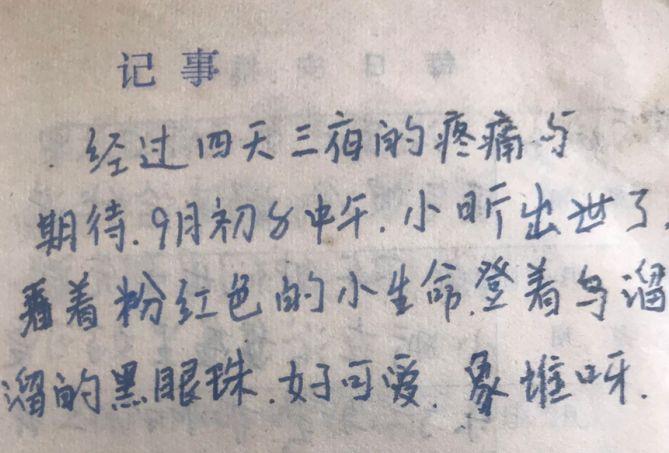 记事
经过四天三夜的疼痛与
期待.9月初8中午.小昕出世了,
看着粉红色的小生命.登着乌溜
溜的黑眼珠.好可爱.象谁呀.